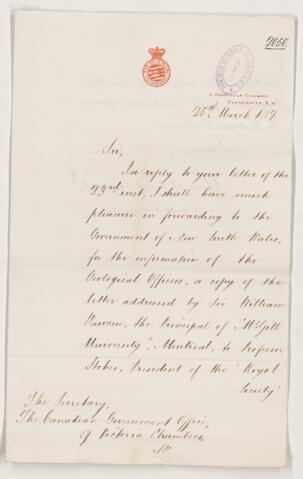 2050.
5 Westminster Chambers,
Westminster, S.W.
25th March 1887
Sir,
In reply to your letter of the
23rd inst, I shall have much
pleasure in forwarding to the
Government of New South Wales,
for the information of the
Geological Officers, a copy of the
letter addressed by Sir William
Dawson, the Principal of "McGill
University", Montreal, to Professor
Stokes, President of the "Royal
Society"
The Secretary,
The Canadian Government Office,
9 Victoria Chambers,